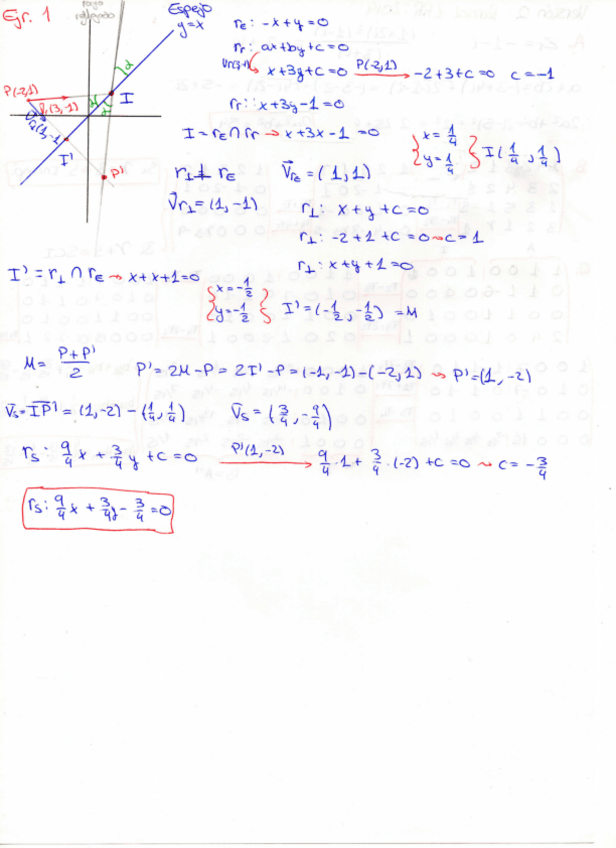 Ejr. 1
rayo
reflejado
Espejo
y=x
P(-2,1)
(3,-1)
I
I'
P'
α
α
α
r_E: -x+y=0
r_r: ax+by+c=0
x+3y+c=0 P(-2,1) → -2+3+c=0 c=-1
r_r: x+3y-1=0
I=r_E∩r_r → x+3x-1=0 { x=1/4 y=1/4 } I(1/4, 1/4)
r_⊥ ⊥ r_E V⃗r_E=(1,1)
V⃗r_⊥=(1,-1) r_⊥: x+y+c=0
r_⊥: -2+1+c=0 → c=1
r_⊥: x+y+1=0
I'=r_⊥∩r_E → x+x+1=0 { x=-1/2 y=-1/2 } I'=(-1/2, -1/2) =M
M= P+P'/2 P'=2M-P=2I'-P=(-1,-1)-(-2,1) → P'=(1,-2)
V⃗s=IP'=(1,-2)-(1/4, 1/4) V⃗s=(3/4, -9/4)
r_s: 9/4 x + 3/4 y + c=0 P'(1,-2) → 9/4·1+ 3/4·(-2)+c=0 → c=-3/4
r_s: 9/4 x + 3/4 y - 3/4=0